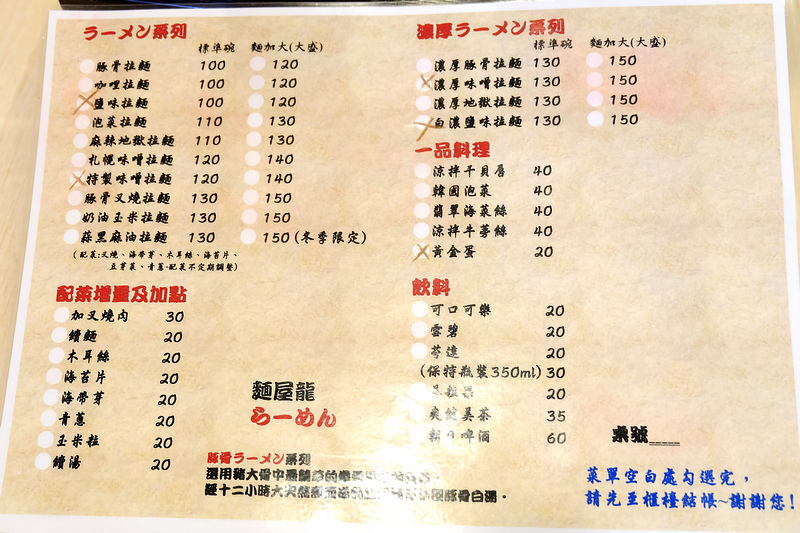 ラーメン系列
標準碗 麵加大(大盛)
豚骨拉麵 100 120
咖哩拉麵 100 120
鹽味拉麵 100 120
泡菜拉麵 110 130
麻辣地獄拉麵 110 130
札幌味噌拉麵 120 140
特製味噌拉麵 120 140
豚骨叉燒拉麵 130 150
奶油玉米拉麵 130 150
蒜黑麻油拉麵 130 150(冬季限定)
(配菜:叉燒、海帶芽、木耳絲、海苔片、
豆芽菜、青蔥-配菜不定期調整)
配菜增量及加點
加叉燒肉 30
續麵 20
木耳絲 20
海苔片 20
海帶芽 20
青蔥 20
玉米粒 20
續湯 20
麵屋龍
らーめん
豚骨ラーメン系列
選用豬大骨中最
經十二小時大火 豚骨白湯。
濃厚ラーメン系列
標準碗 麵加大(大盛)
濃厚豚骨拉麵 130 150
濃厚味噌拉麵 130 150
濃厚地獄拉麵 130 150
白濃鹽味拉麵 130 150
一品料理
涼拌干貝唇 40
韓國泡菜 40
翡翠海菜絲 40
涼拌牛蒡絲 40
黃金蛋 20
飲料
可口可樂 20
雪碧 20
芬達 20
(保特瓶裝350ml) 30
20
爽健美茶 35
啤酒 60
桌號____
菜單空白處勾選完，
請先至櫃檯結帳~謝謝您!